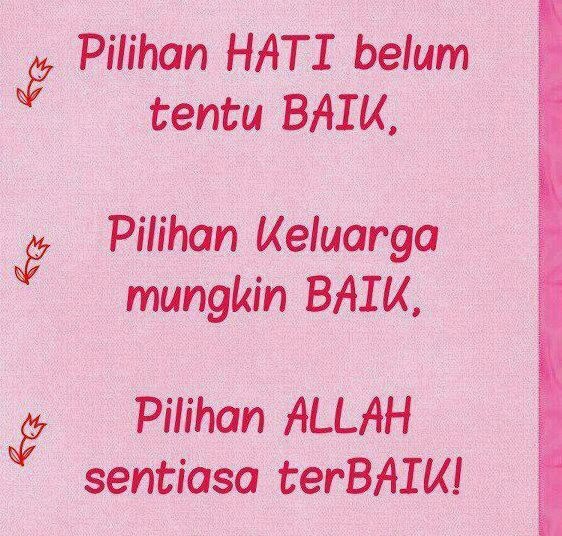 Pilihan HATI belum
tentu BAIK,
Pilihan Keluarga
mungkin BAIK,
Pilihan ALLAH
sentiasa terBAIK!